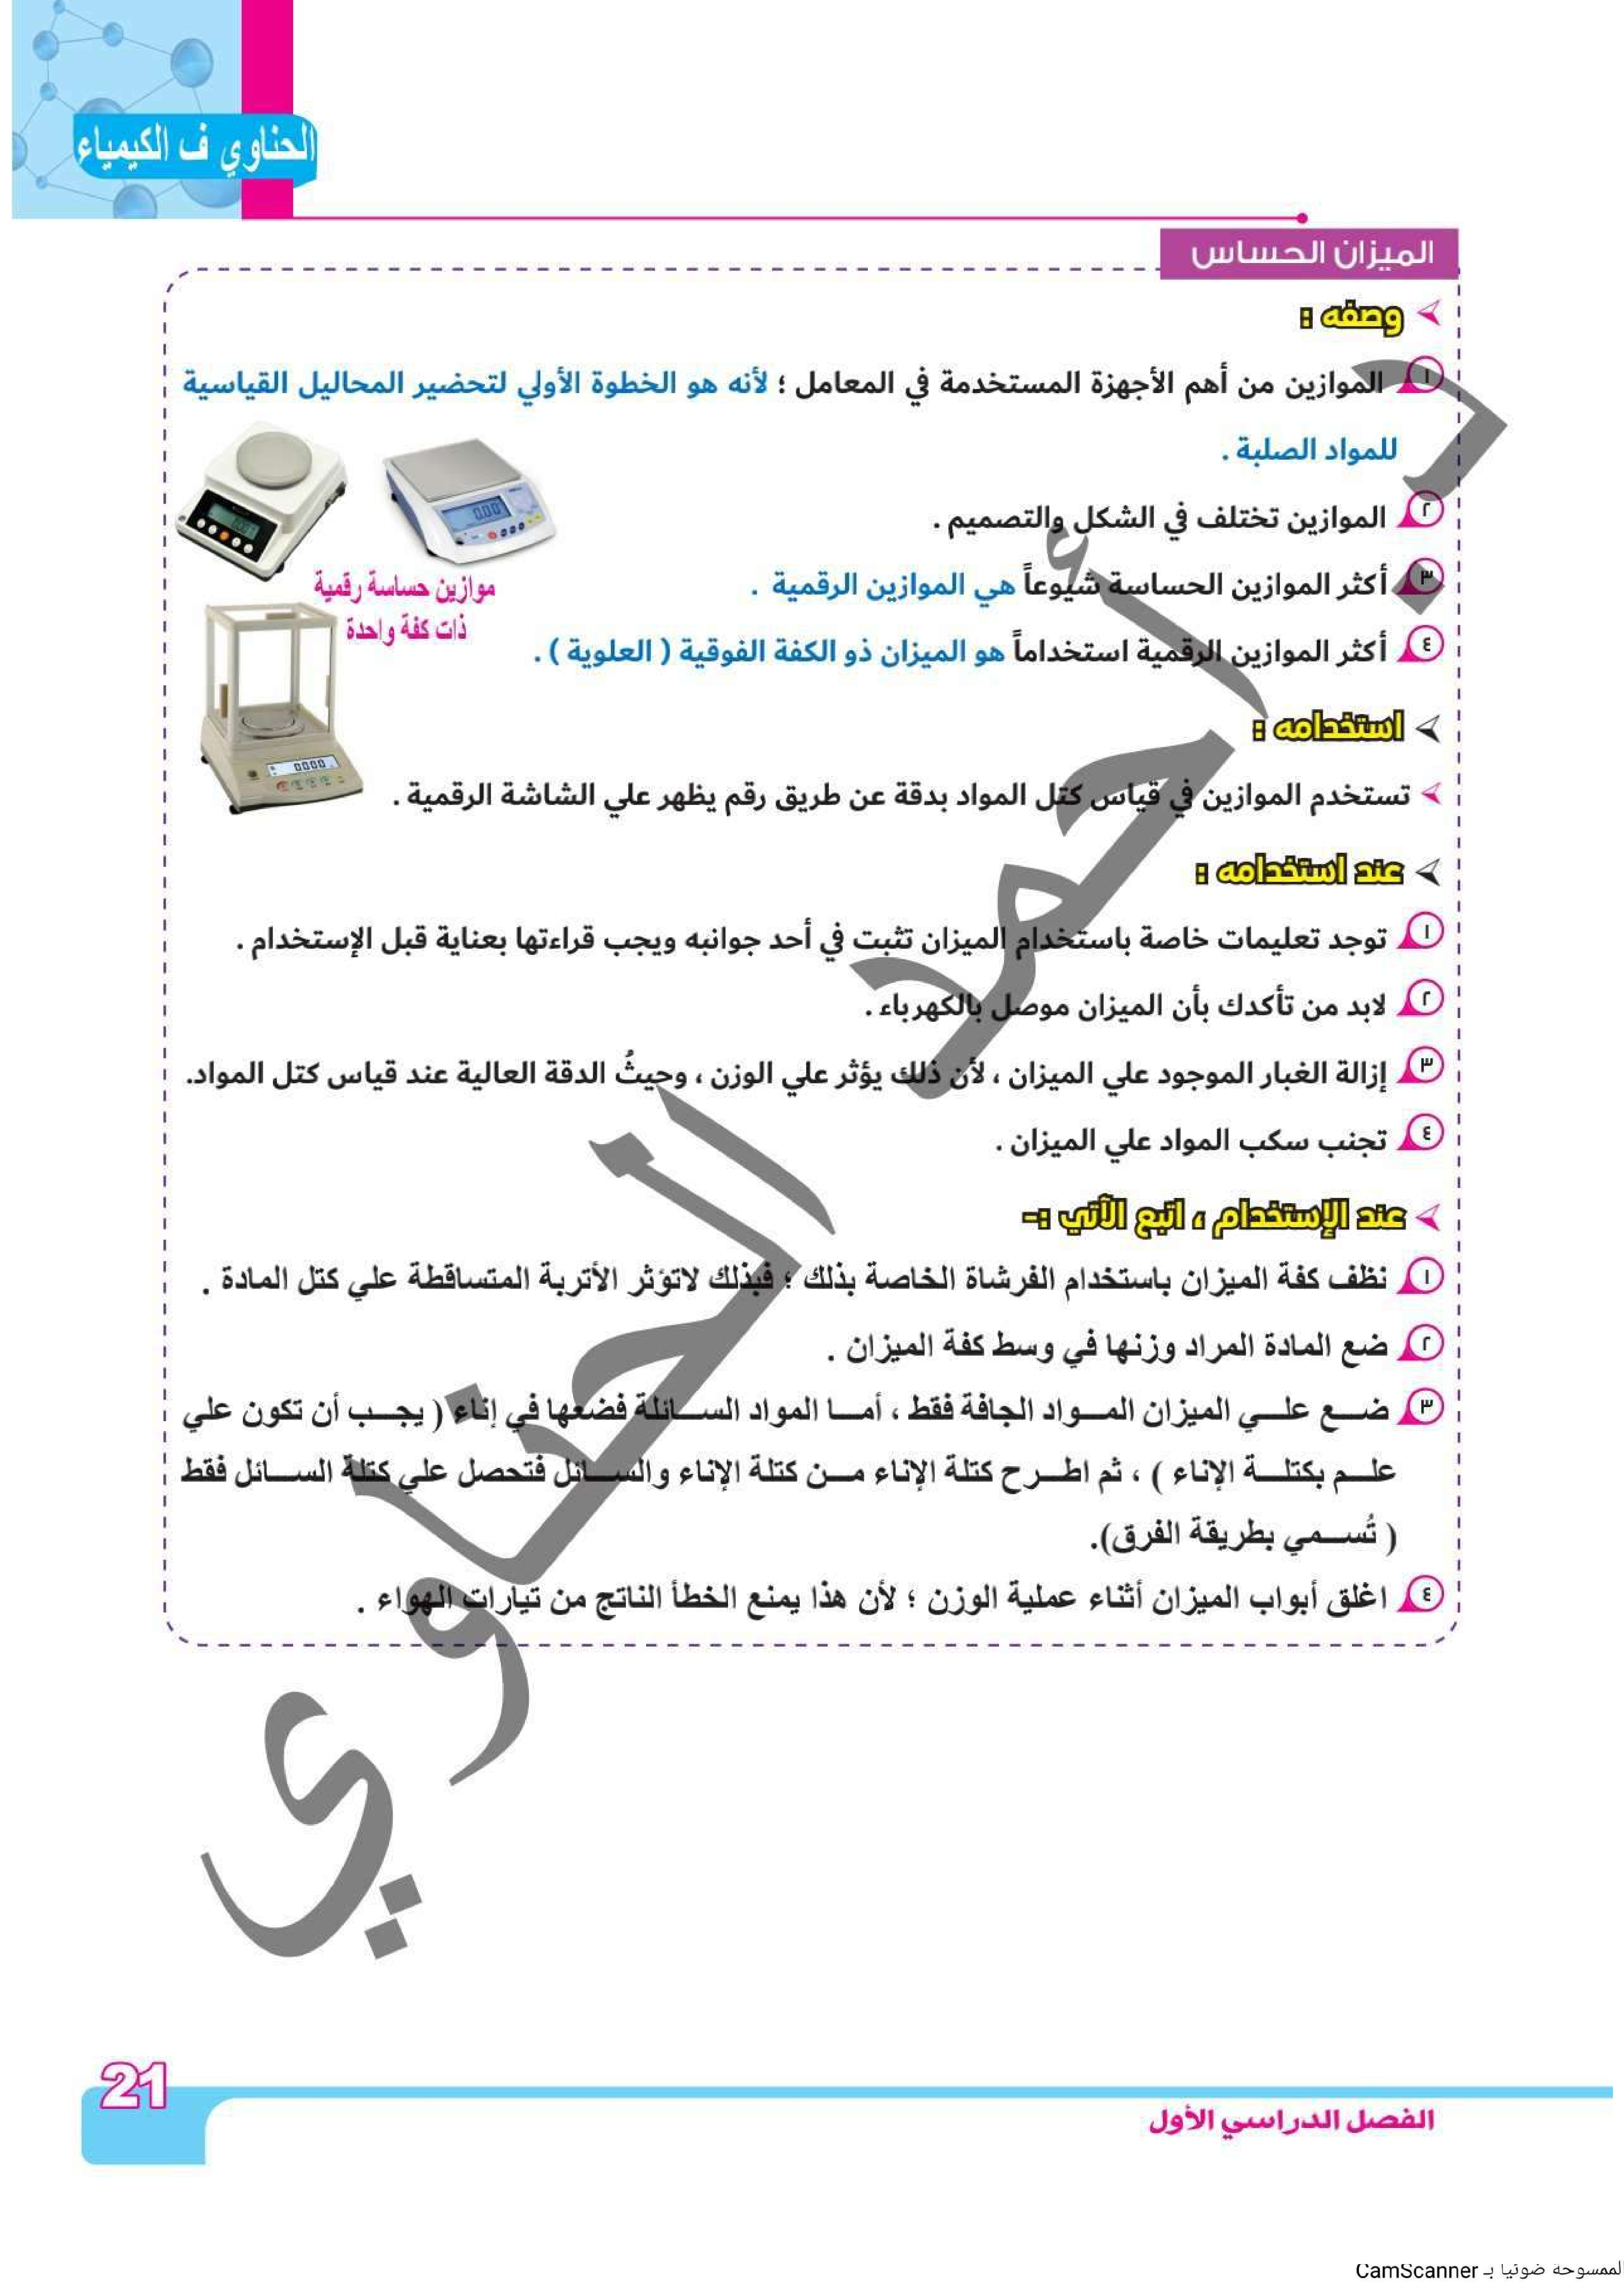 الحناوي ف الكيمياء
الميزان الحساس
وصفه :
١ الموازين من أهم الأجهزة المستخدمة في المعامل ؛ لأنه هو الخطوة الأولي لتحضير المحاليل القياسية
للمواد الصلبة .
٢ الموازين تختلف في الشكل والتصميم .
٣ أكثر الموازين الحساسة شيوعاً هي الموازين الرقمية .
٤ أكثر الموازين الرقمية استخداماً هو الميزان ذو الكفة الفوقية ( العلوية ) .
موازين حساسة رقمية
ذات كفة واحدة
0.00
0000
استخدامه :
تستخدم الموازين في قياس كتل المواد بدقة عن طريق رقم يظهر علي الشاشة الرقمية .
عند استخدامه :
١ توجد تعليمات خاصة باستخدام الميزان تثبت في أحد جوانبه ويجب قراءتها بعناية قبل الإستخدام .
٢ لابد من تأكدك بأن الميزان موصل بالكهرباء .
٣ إزالة الغبار الموجود علي الميزان ، لأن ذلك يؤثر علي الوزن ، وحيثُ الدقة العالية عند قياس كتل المواد.
٤ تجنب سكب المواد علي الميزان .
عند الإستخدام ، اتبع الآتي :-
١ نظف كفة الميزان باستخدام الفرشاة الخاصة بذلك ؛ فبذلك لاتؤثر الأتربة المتساقطة علي كتل المادة .
٢ ضع المادة المراد وزنها في وسط كفة الميزان .
٣ ضـــع علـــي الميزان المـــواد الجافة فقط ، أمـــا المواد الســـائلة فضعها في إناء ( يجـــب أن تكون علي
علـــم بكتلـــة الإناء ) ، ثم اطـــرح كتلة الإناء مـــن كتلة الإناء والســـائل فتحصل علي كتلة الســـائل فقط
( تُســـمي بطريقة الفرق).
٤ اغلق أبواب الميزان أثناء عملية الوزن ؛ لأن هذا يمنع الخطأ الناتج من تيارات الهواء .
د. أحمد الحناوي
21
الفصل الدراسي الأول
لممسوحة ضوئيا بـ CamScanner